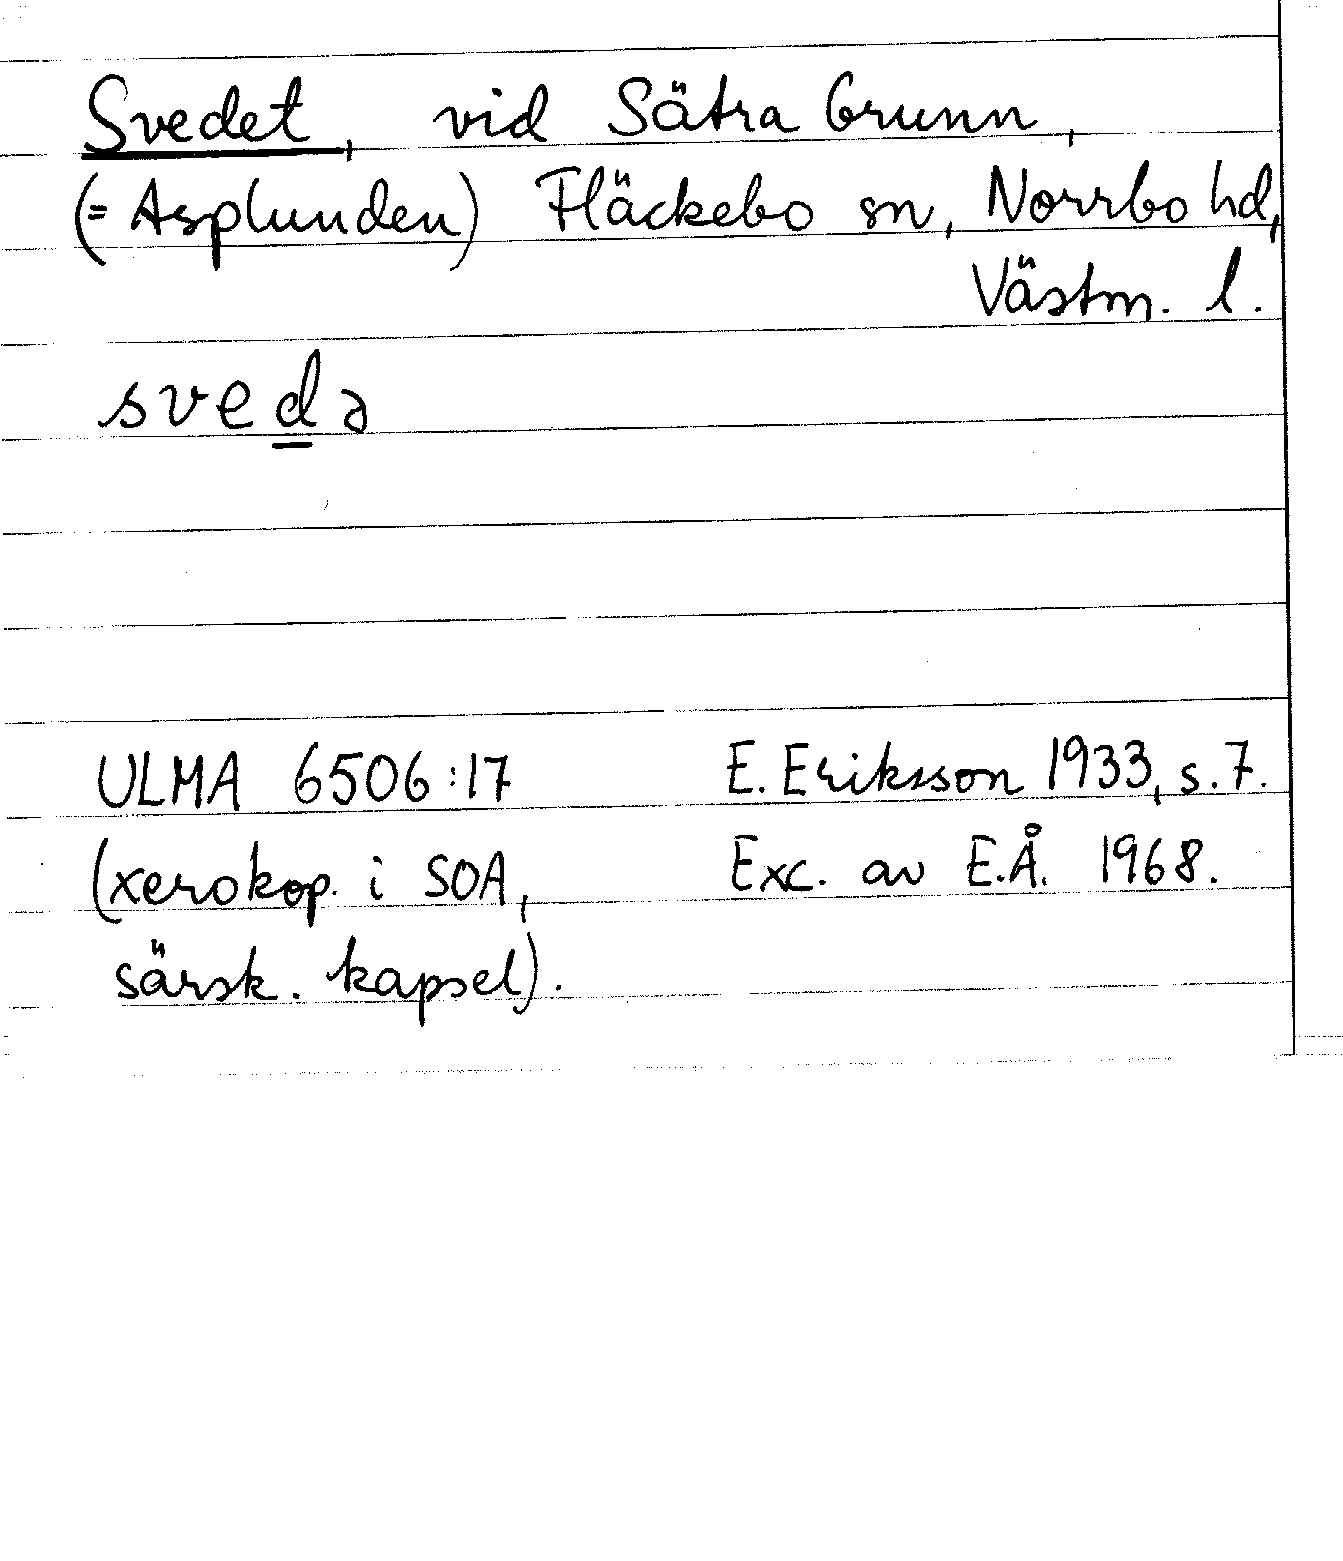 Svedet, vid Sätra brunn,
(= Asplunden) Fläckebo sn, Norrbo hd,
Västm. l.
svedə
ULMA 6506:17 E. Eriksson 1933, s. 7.
(xerokop. i SOA, Exc. av E.Å. 1968.
särsk. kapsel).